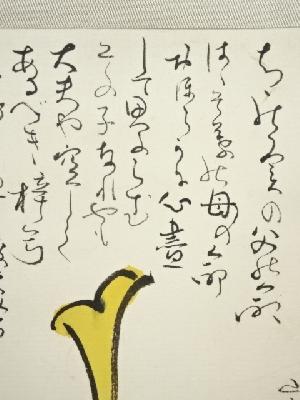 ちゝの実の父の命
はゝそ葉の母の命
おほろかに心盡
して思ふらむ
その子なれやも
大夫や空しく
あるべき梓弓